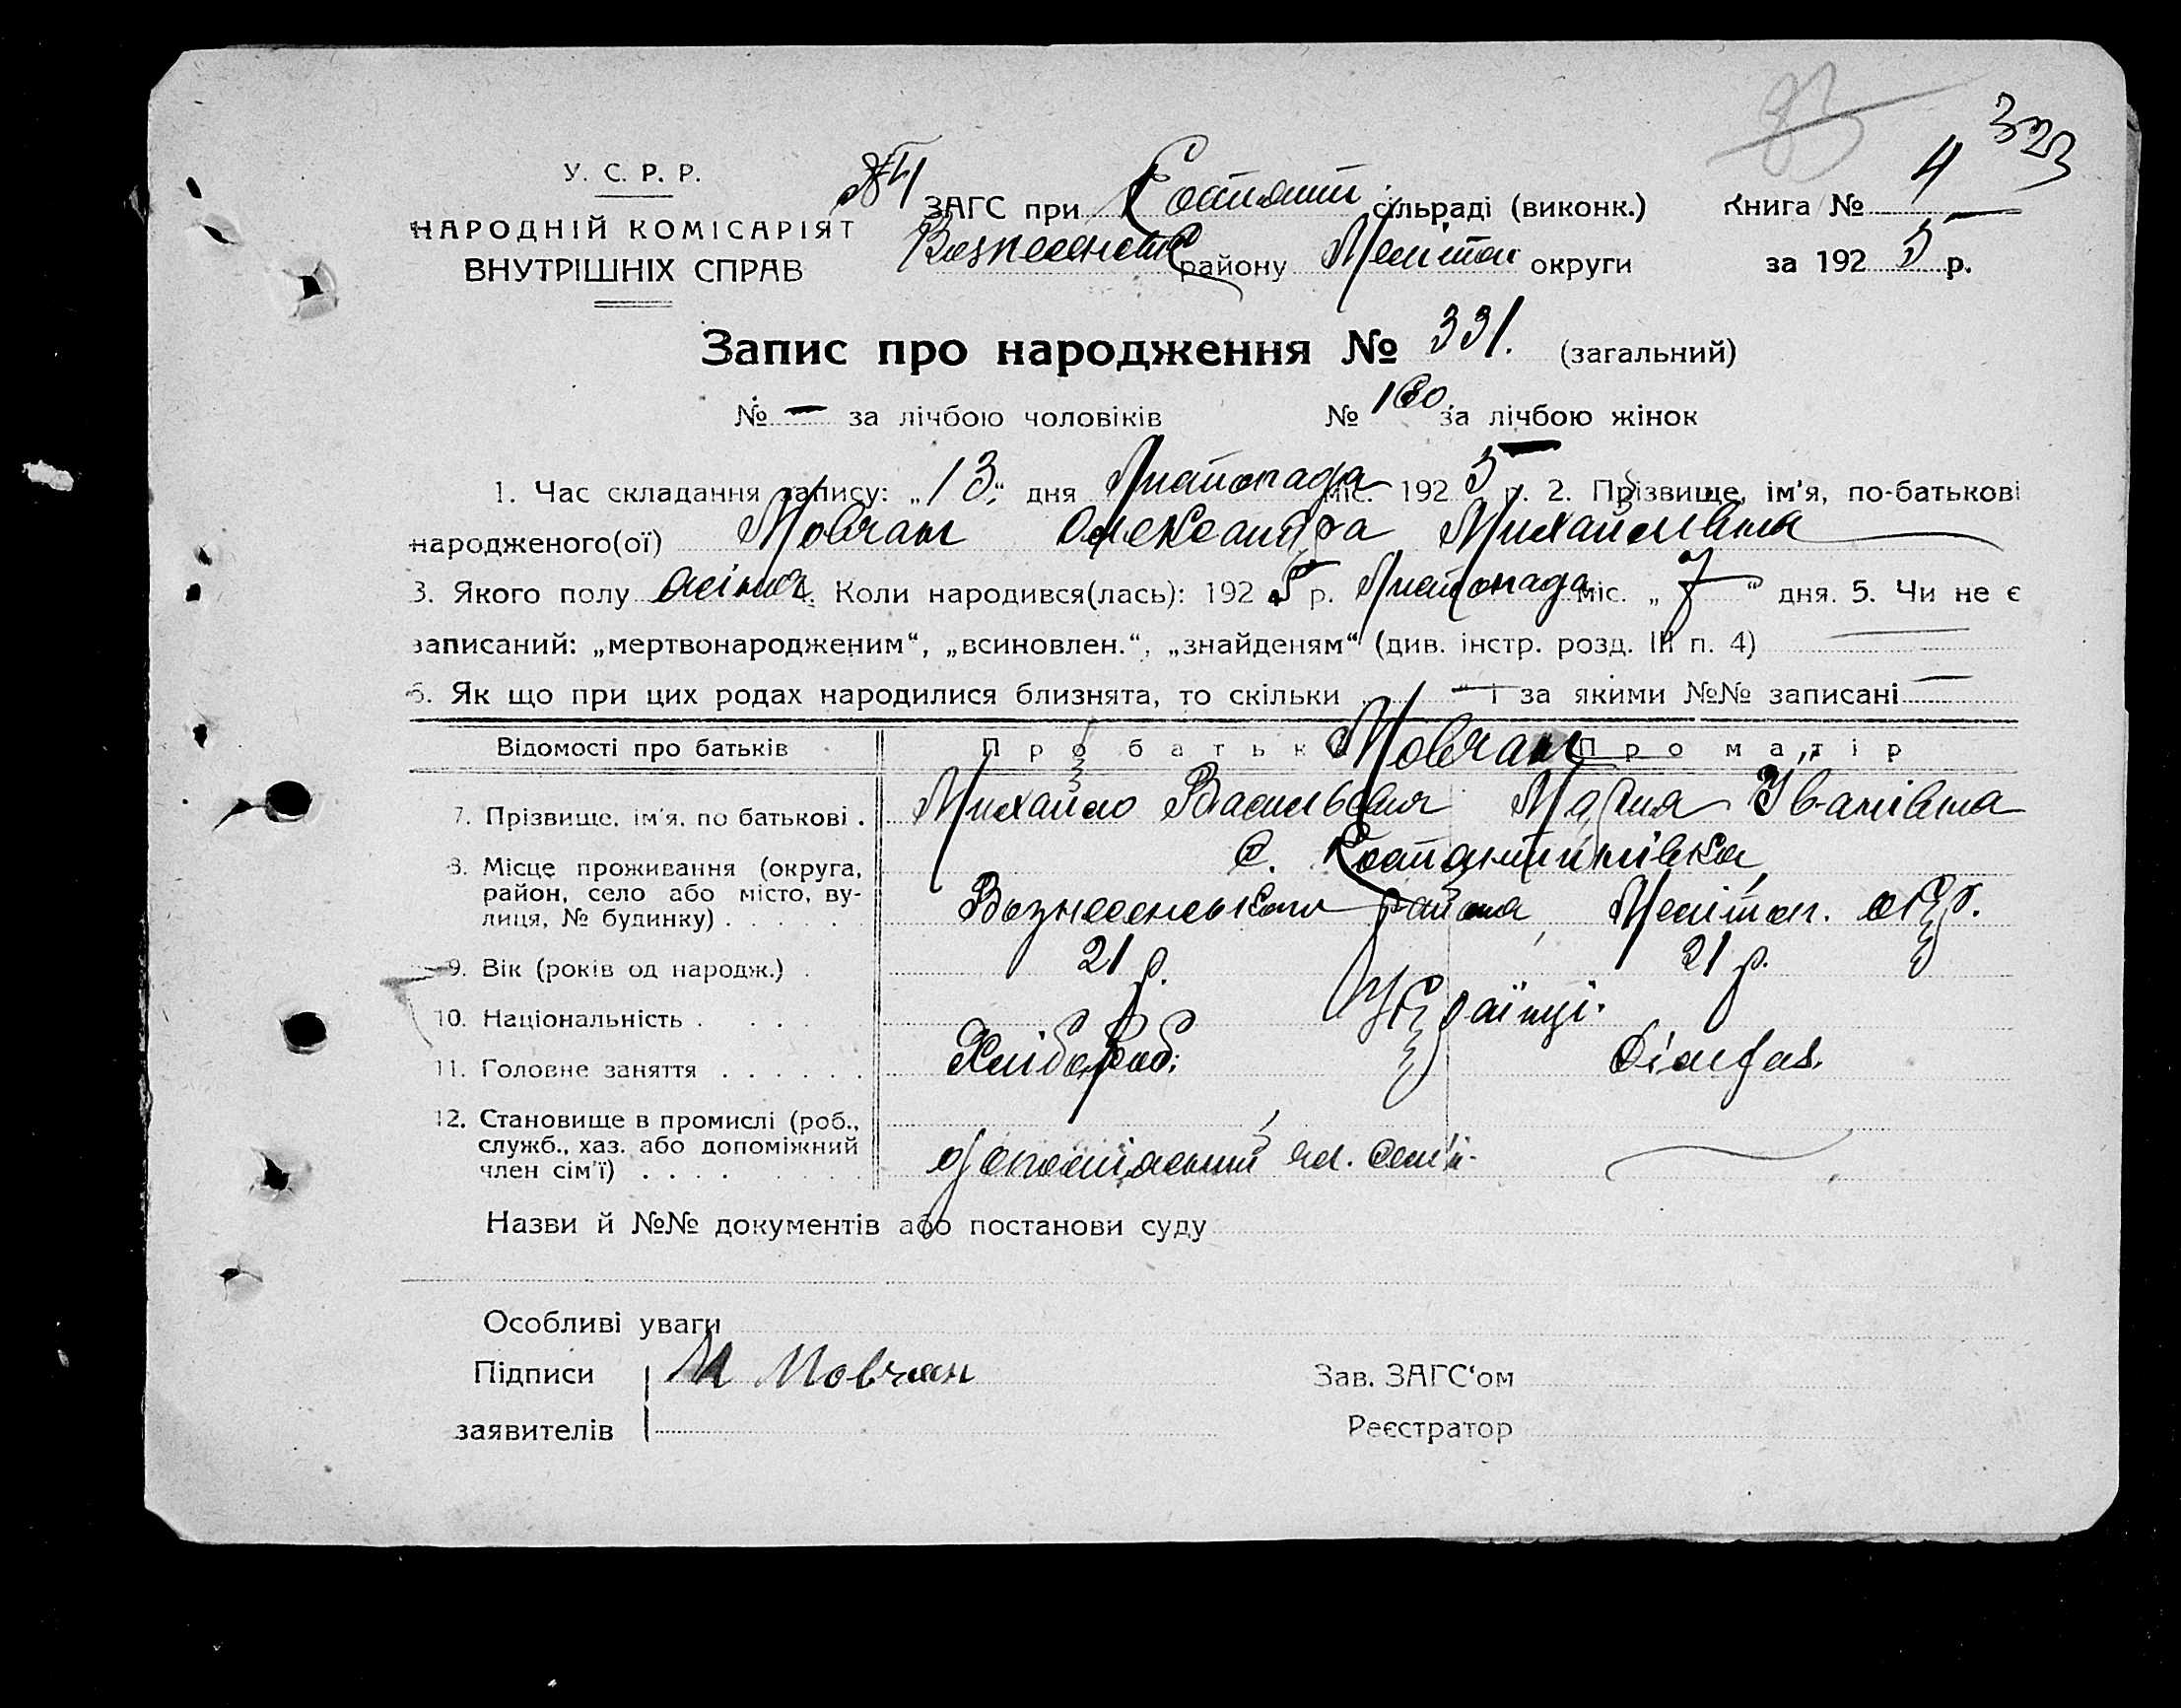 323
У. С. Р. Р.
НАРОДНІЙ КОМІСАРІЯТ
ВНУТРІШНІХ СПРАВ
ЗАГС при Костянт сільраді (виконк.) Книга № 4
району Меліт округи за 1925 р.
Запис про народження № 331. (загальний)
№ — за лічбою чоловіків № за лічбою жінок
1. Час складання запису: „13“ дня Листопада міс. 1925 р. 2. Прізвище, ім'я, по-батькові
народженого(ої) Мовчан Олександра Михайлівна
3. Якого полу жіноч. Коли народився(лась): 1925 р. Листопада міс. „7“ дня. 5. Чи не є
записаний: „мертвонародженим“, „всиновлен.“, „знайденям“ (див. інстр. розд. III п. 4) —
6. Як що при цих родах народилися близнята, то скільки „—“ і за якими №№ записані —
Відомості про батьків Про батька Мовчан Про матір
7. Прізвище, ім'я, по батькові . Михайло Васильович Марія Іванівна
8. Місце проживання (округа, район, село або місто, вулиця, № будинку) . . . . . с. Костянтинівка
Вознесенського району, Мелітоп. окр.
9. Вік (років од народж.) . 21 р. 21 р.
10. Національність . . . . Українці.
11. Головне заняття . . . . . . Хлібороб.
12. Становище в промислі (роб., служб., хаз. або допоміжний член сім'ї) . . . . чл. сем'ї. —
Назви й №№ документів або постанови суду
Особливі уваги
Підписи М Мовчан Зав. ЗАГС'ом
заявителів Реєстратор